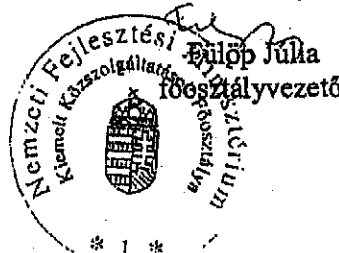 Fülöp Júlia
főosztályvezető
Nemzeti Fejlesztési Minisztérium
Kiemelt Közszolgáltatások Főosztálya
* 1 *